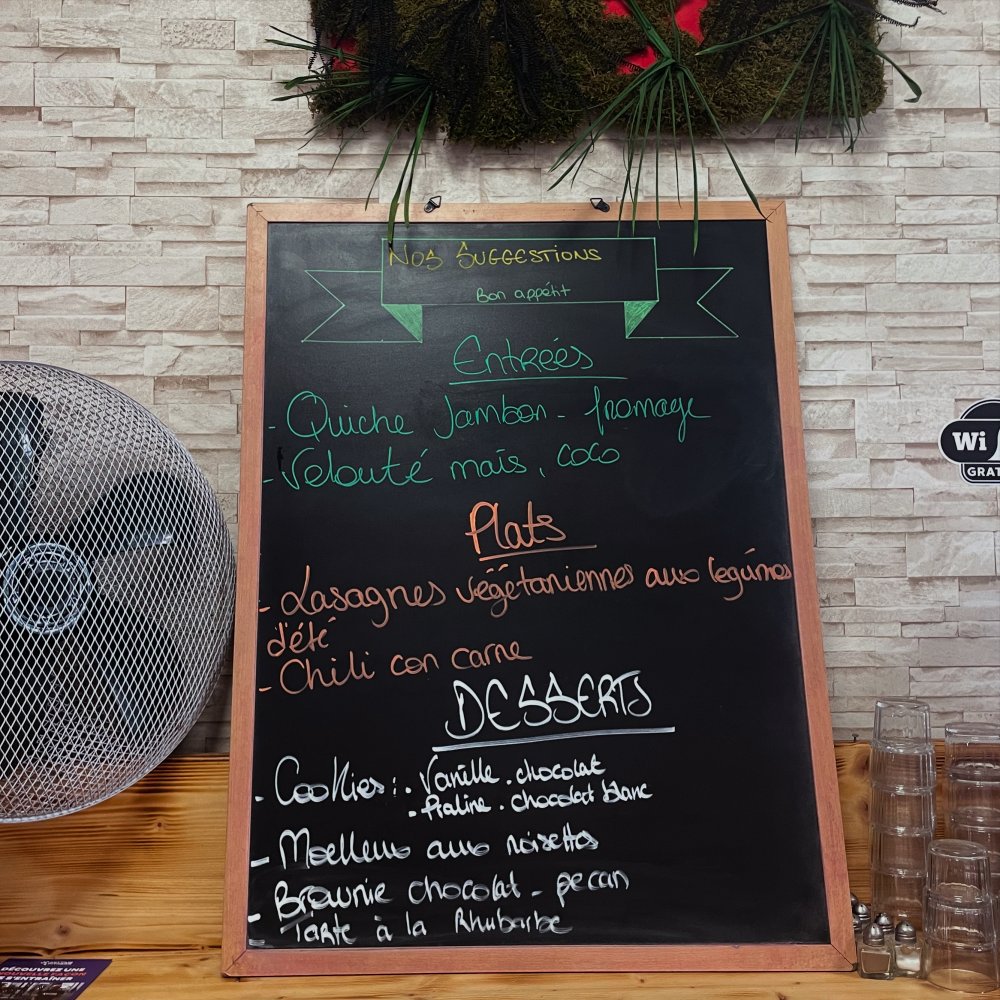 Nos Suggestions
Bon appétit
Entrées
- Quiche Jambon - fromage
- Velouté maïs, coco
Plats
- Lasagnes végétariennes aux légumes
d'été
- Chili con carne
DESSERTS
- Cookies : . Vanille . chocolat
. Praline . chocolat blanc
- Moelleux aux noisettes
- Brownie chocolat - pecan
- Tarte à la Rhubarbe
Wi
GRAT
DÉCOUVREZ UNE
NOUVELLE FAÇON
S'ENTRAÎNER